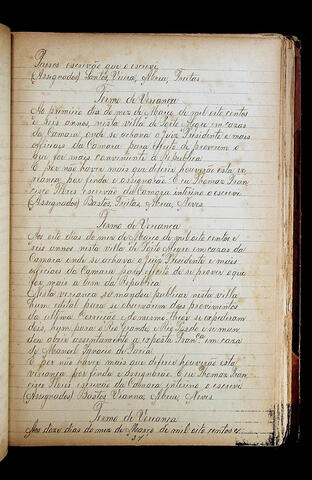 Passos escrivão que o escrevi
(Assignados) Santos, Vieira, Abreu, Freitas
Termo de Vereança
Ao primeiro dia do mez de Março de mil oito centos
e seis annos nesta villa de Porto Alegre em cazas
da Camara onde se achava o Juiz Presidente e mais
officiaes da Camara para effeito de proverem o
que for mais conveniente á Republica
E por não haver mais que deferir houverão esta ve
reança por finda e assignarão Eu Thomaz Fran
cisco Flores Escrivão da Camara interino o escrevi
(Assignados) Bastos, Freitas, Abreu, Alves
Termo de Vereança
Aos oito dias do mez de Março de mil oito centos e
seis annos nesta villa de Porto Alegre em cazas da
Camara onde se achava o Juiz Presidente e mais
officiaes da Camara para effeito de se prover o que
for mais a bem da Republica
Nesta vereança se mandou publicar nesta villa
hum edital para se observarem dos provimentos
da ultima Correição e do mesmo theor se expedirão
dois, hum para o Rio Grande e se man
dou abrir assentamento a exposta Fran.ca em caza
de Manoel Ignacio de Faria
E por não haver mais que deferir houverão esta
vereança por finda e assignarão Eu Thomaz Fran
cisco Flores escrivão da Camara interino o escrevi
(Assignados) Bastos, Vianna, Abreu, Alves
Termo de Vereança
Aos doze dias do mez de Março de mil oito centos e
31